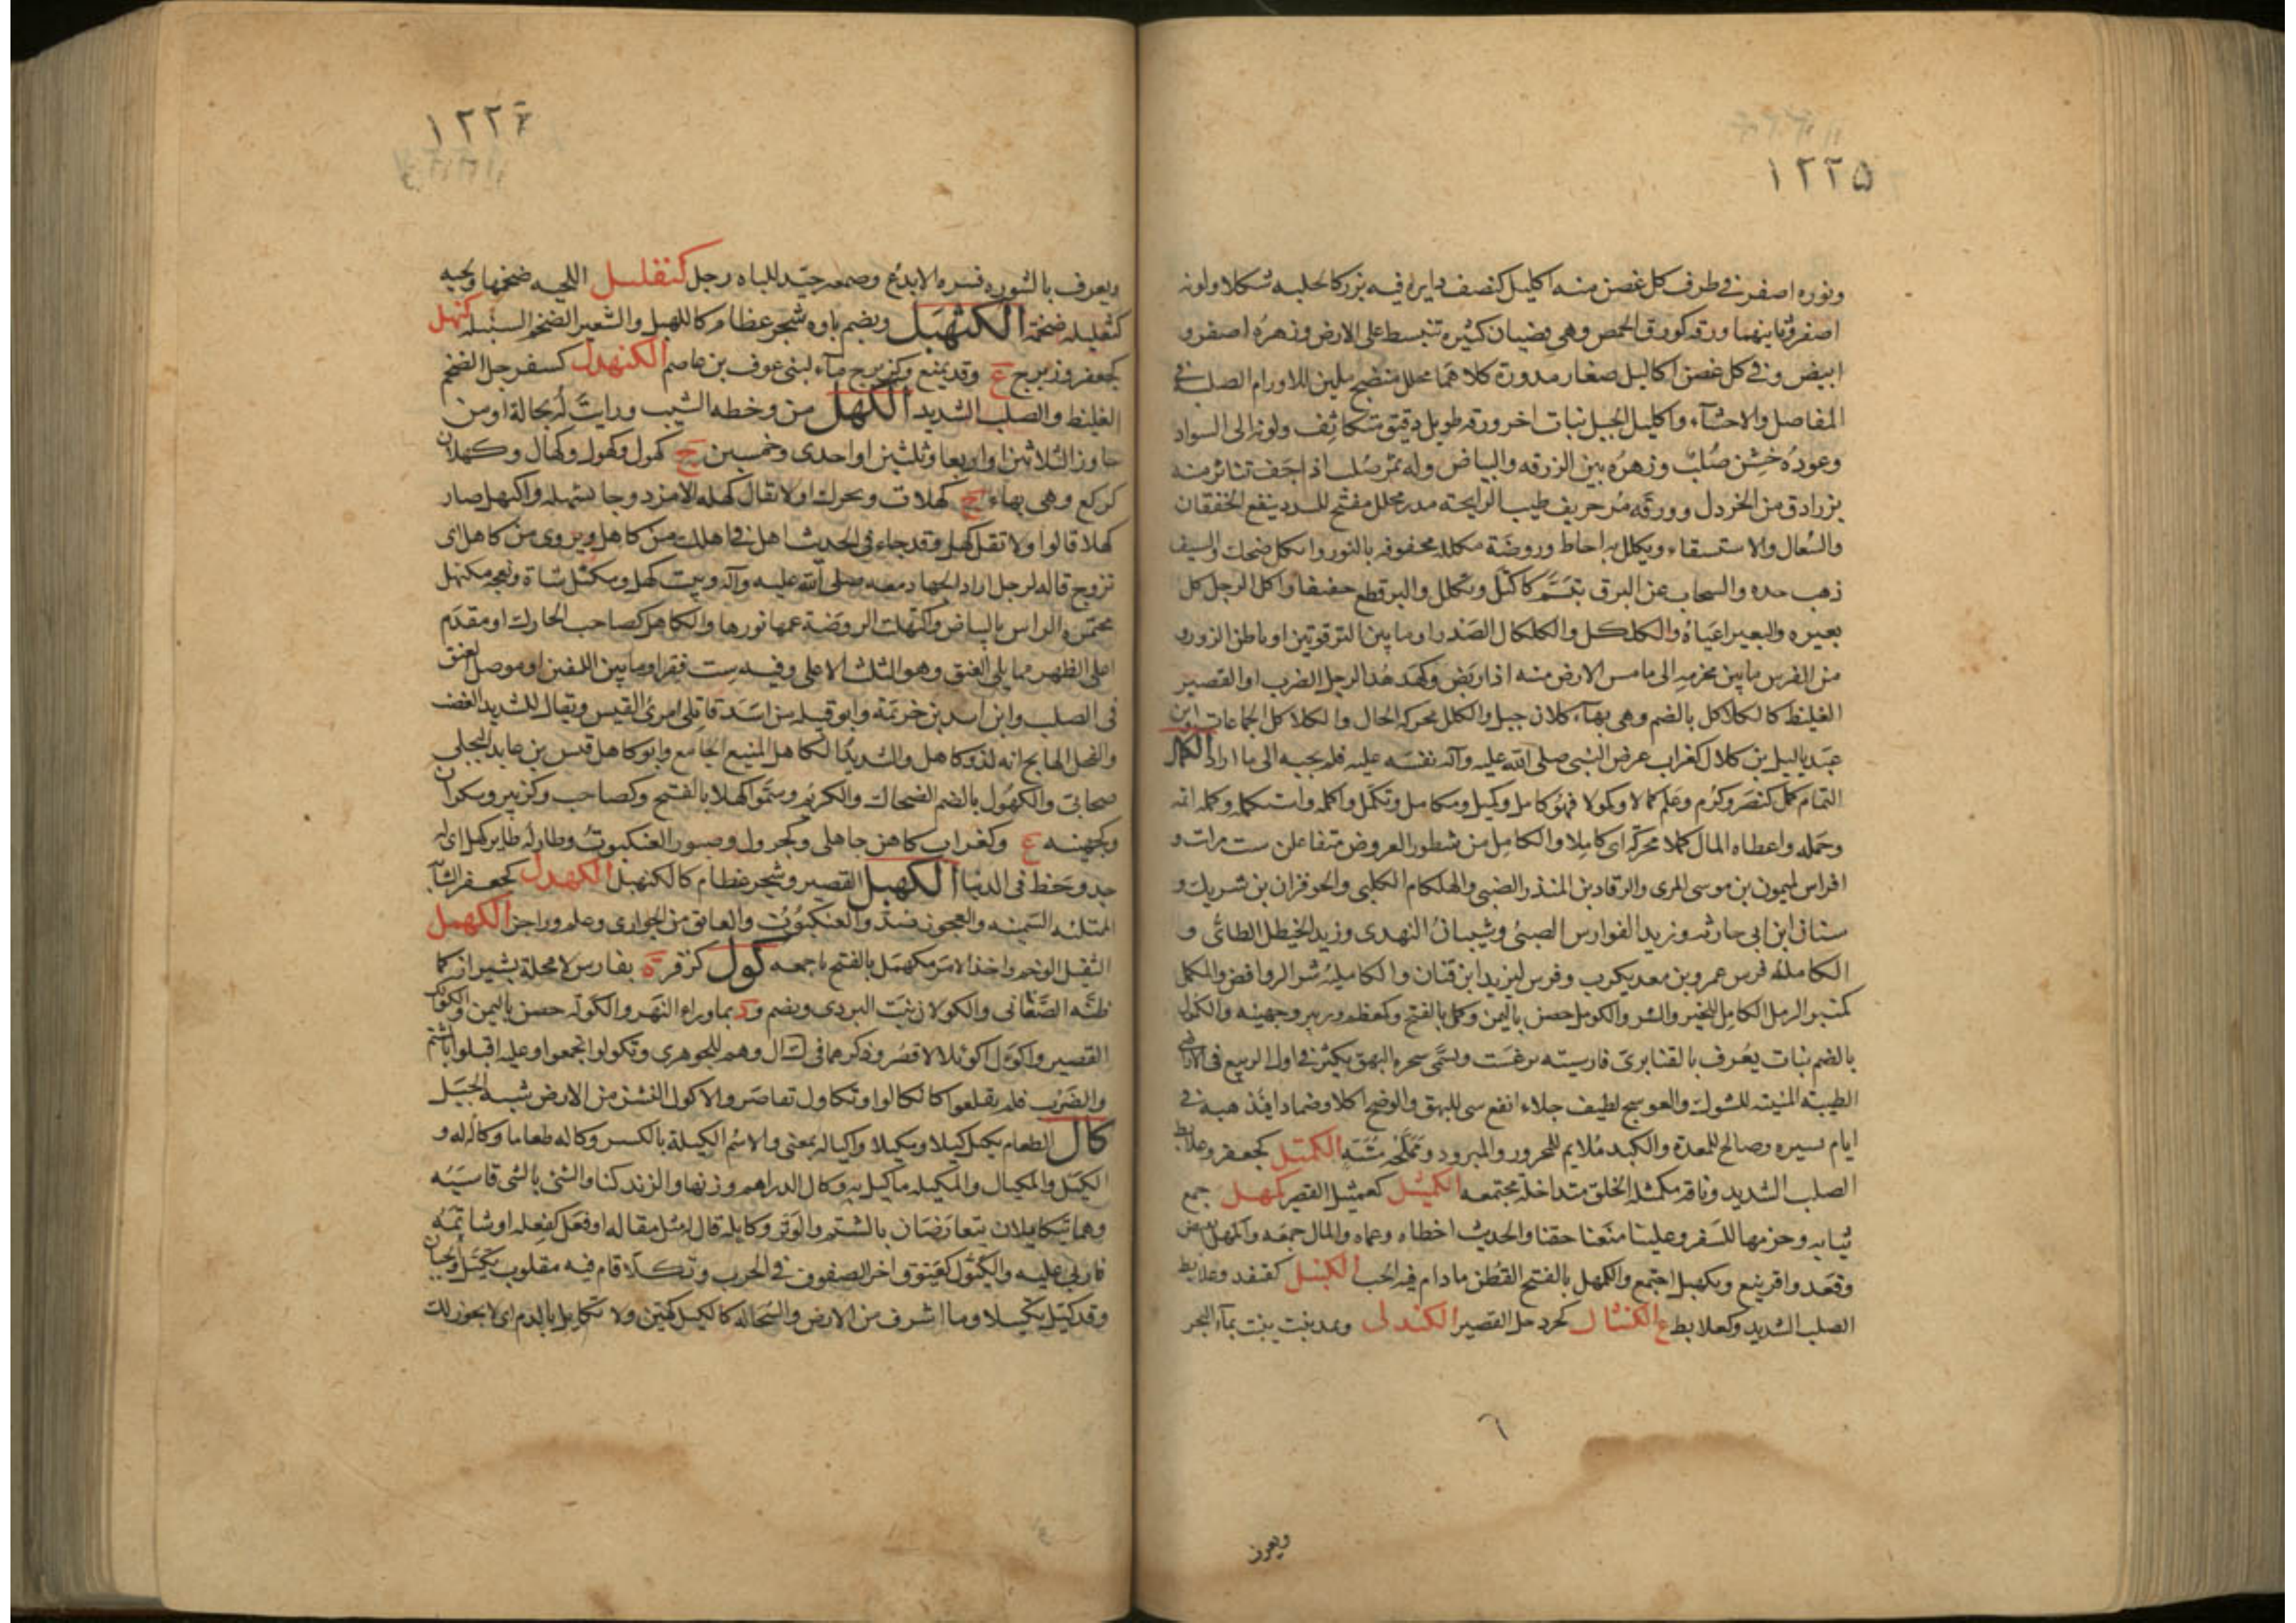 ١٢٢٥
ونوره اصفر في طرف كل غصن منه اكليل كنصف دايرة فيه بزر كالحلبه شكلا ولونه
اصفر وثانيهما ورقه كورق الحمص وهي قضبان كثيره تنبسط على الارض وزهره اصفر و
ابيض وفي كل غصن اكاليل صغار مدورة كلاهما محلل منضج ملين للاورام الصلبه في
المفاصل والاحشآء واكليل الجبل نبات اخر ورقه طويل دقيق متكاثف ولونه الى السواد
وعوده خشن صُلب وزهره بين الزرقه والبياض وله ثمر صُلب اذا جف تناثر منه
بزر ادق من الخردل وورقه مُر حريف طيب الرايحة مدر محلل مفتح للسدد ينفع الخفقان
والسُعال والاستسقاء وتكلل به احاط وروضة مكلله محفوفه بالنور وانكل ضحك والسيف
ذهب حده والسحاب عن البرق تبسّم كاكتل وتكلل والبرق لمع خفيفا واكل الرجل كل
بعيره والبعير اعياه والكلكل والكلكال الصَدر او ما بين الترقوتين او باطن الزور و
من الفرس ما بين محزمه الى ما مس الارض منه اذا ربض وكهدهد الرجل الضرب او القصير
الغليظ كالكلاكل بالضم وهي بهآء وكلان جبل والكلل محركه الحال والكلاكل الجماعات وابن
عبد ياليل بن كلال كغراب عرض النبي صلى الله عليه وآله نفسَه عليه فلم يجبه الى ما اراد الكمال
التمام كمل كنصر وكرُم وعلم كمالا وكمولا فهو كامل وكميل وتكامل وتكمّل واكمله واستكمله وكمله اتمه
وجمله واعطاه المال كملا محركة اي كاملا والكامل من شطور العروض متفاعلن ست مرات و
افراس لميمون بن موسى المرى والرقاد بن المنذر الضبي والهلكام الكلبي والحوفزان بن شريك و
سنان ابن ابي حارثه وزيد الفوارس الضبي وشيبان النهدى وزيد الخيل الطائي و
الكاملة فرس عمرو بن معديكرب وفرس ليزيد ابن قنان والكامليه شر الروافض والمكمل
كمنبر الرجل الكامل للخير والشر والكومل حصن باليمن وكمل بالفتح وكمعظم وزبير وجهينه والكمل
بالضم نبات يعرف بالقنابرى فارسيته برغست ويسمى شجره البهق يكثر في اول الربيع في الاراضي
الطيبة المنبتة للشوك والعوسج لطيف جلاء انفع شي للبهق والوضح اكلا وضمادا يذهبه في
ايام يسيره وصالح للمعدة والكبد ملايم للمحرور والمبرود الكمتل كجعفر وعلابط
الصلب الشديد وناقه مكمتلة الخلق متداخلة مجتمعه الكميثل كعميثل القصير كمهل جمع
ثيابه وحزمها للسفر وعلينا منعنا حقنا والحديث اخفاه وعماه والمال جمعه واكمهل
وقعد واقرنبع وتكمهل اجتمع والكمهل بالفتح القطن ما دام فيه الحب الكنبل كقنفد وعلابط
الصلب الشديد وكعلابط ع الكنثال كجردحل القصير الكندلى ويمد نبت ينبت بمآء البحر
٦
ويعرف
١٢٢٦
ويعرف بالشوره قشره الايدع وصمغه جيّد للباه رجل كنفليل اللحيه ضخمها ولحيه
كنفليله ضخمة الكنهبل ويضم باوه شجر عظام كاللهبل والشعير الضخم السنبله كنهل
كجعفر وزبرج ع وقد يمنع وكزبرج مآء لبني عوف بن عاصم الكنهدل كسفرجل الضخم
الغليظ والصلب الشديد الكهل من وخطه الشيب ورايت له بجالة او من
جاوز الثلاثين او اربعا وثلثين او احدى وخمسين ج كهول وكهول وكهال وكهلان
كركع وهي بهاء ج كهلات ويحرك او لا يقال كهله الا مزدوجا بشهله واكتهل صار
كهلا قالوا ولا تقل كهل وقد جاء في الحديث اهل في اهلك من كاهل ويروى من كاهل اى
تزوج قاله لرجل اراد الجهاد معه صلى الله عليه وآله ونبت كهل ومكتهل شاة ونعجه مكتهل
مختمرة الراس بالبياض واكتهلت الروضة عمها نورها والكاهل كصاحب الحارك او مقدم
اعلى الظهر مما يلي العنق وهو الثلث الاعلى وفيه ست فقر او ما بين الكتفين او موصل العنق
في الصلب وابن اسد بن خزيمة وابو قبيله من اسد قاتلي امرئ القيس ويقال للشديد الغضب
والفحل الهايج انه لذو كاهل والشديد الكاهل المنيع الجامع وابو كاهل قيس بن عايد البجلي
صحابي والكهول بالضم الضحاك والكريم وسَمّوا كهلا بالفتح وكصاحب وكزبير وسكران
وكجهينه ع وكغراب كاهن جاهلي وكجرول وصبور العنكبوت وطار له طاير كهل اي له
جد وحظ في الدنيا الكهبل القصير وشجر عظام كالكنهبل الكهدل كجعفر الشآبة
الممتلئه السمينه والعجوز ضد والعنكبوت والعاتق من الجوارى وعلم وراجز الكهمل
الثقيل الوخم واخذ الامر مكهملا بالفتح باجمعه كول كزفر ة بفارس لا محلة بشيراز كما
ظنّه الصَّغانى والكولان نبت البردى ويضم ود بماوراء النهر والكولة حصن باليمن والكوَأْلَل
القصير واكوَأل اكوئلالا قصُر وذكرهما في ك ا ل وهم للجوهرى وتكولوا تجمعوا وعليه اقبلوا بالشتم
والضرب فلم يقلعوا كانكالوا وتكاول تقاصر والاكول النشز من الارض شبه الجبيل
كال الطعام يكيل كيلا ومكيلا واكتاله بمعنى والاسم الكيلة بالكسر وكاله طعاما وكاله له و
الكيل والمكيال والمكيله ما كيل به وكال الدراهم وزنها والزند كبا والشي بالشي قاسَه
وهما يتكايلان يتعارضان بالشتم والوتر وكايله قال له مثل مقاله او فعل كفعله او شاتمه
فاربى عليه والكيّول كعيّوق اخر الصفوف في الحرب وتكلّا قام فيه مقلوب تكيل والجبان
وقد كيّل تكييلا وما اشرف من الارض والسُحاله كالكيل كهيّن ولا تكايل بالدم اى لا يجوز لك